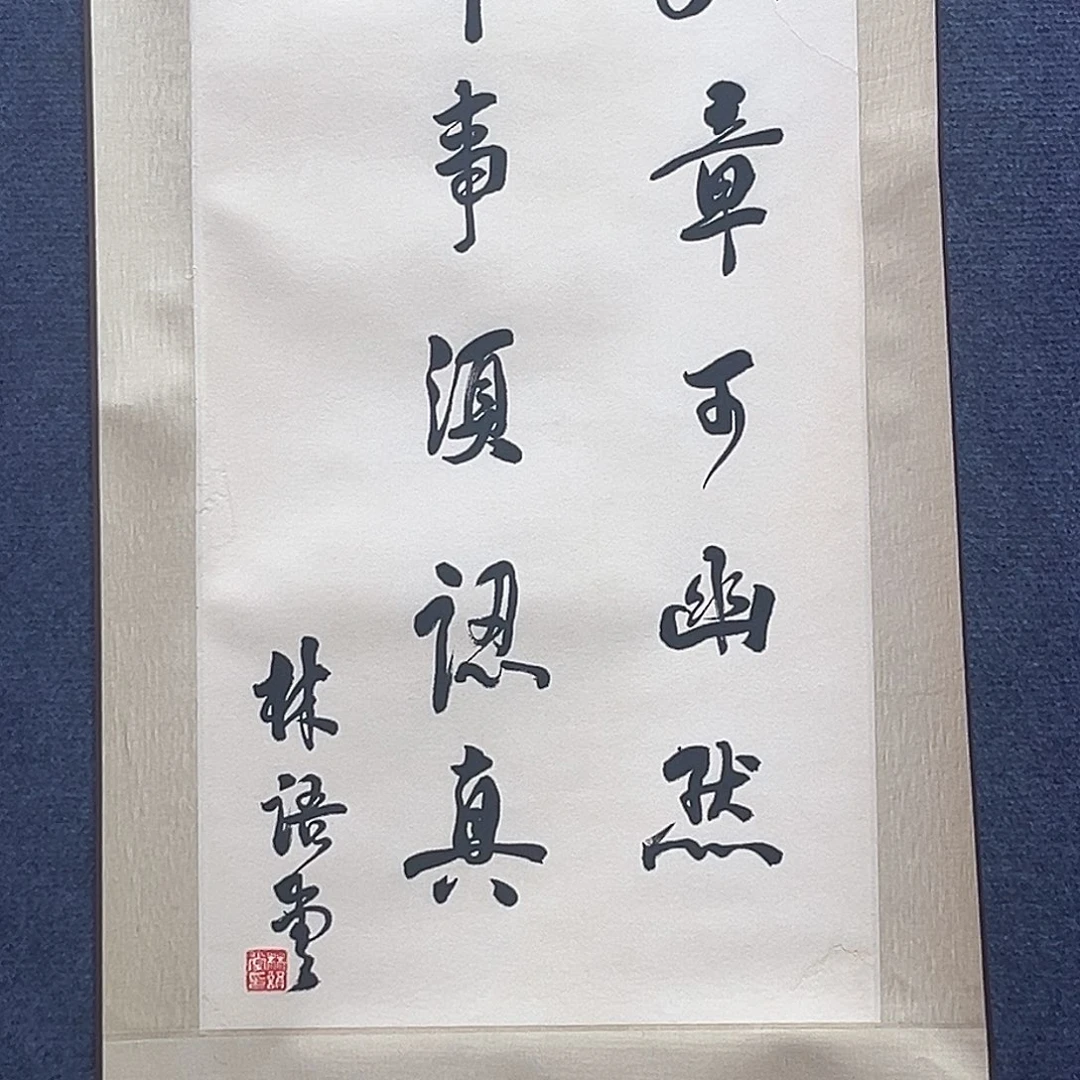 章可幽默
事須認真
林語堂